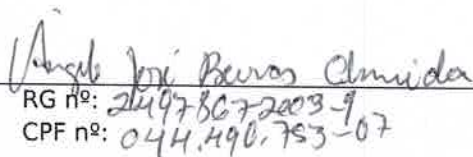 Ângelo José Barros Almeida
RG nº: 2497867-2003-9
CPF nº: 044.490.753-07